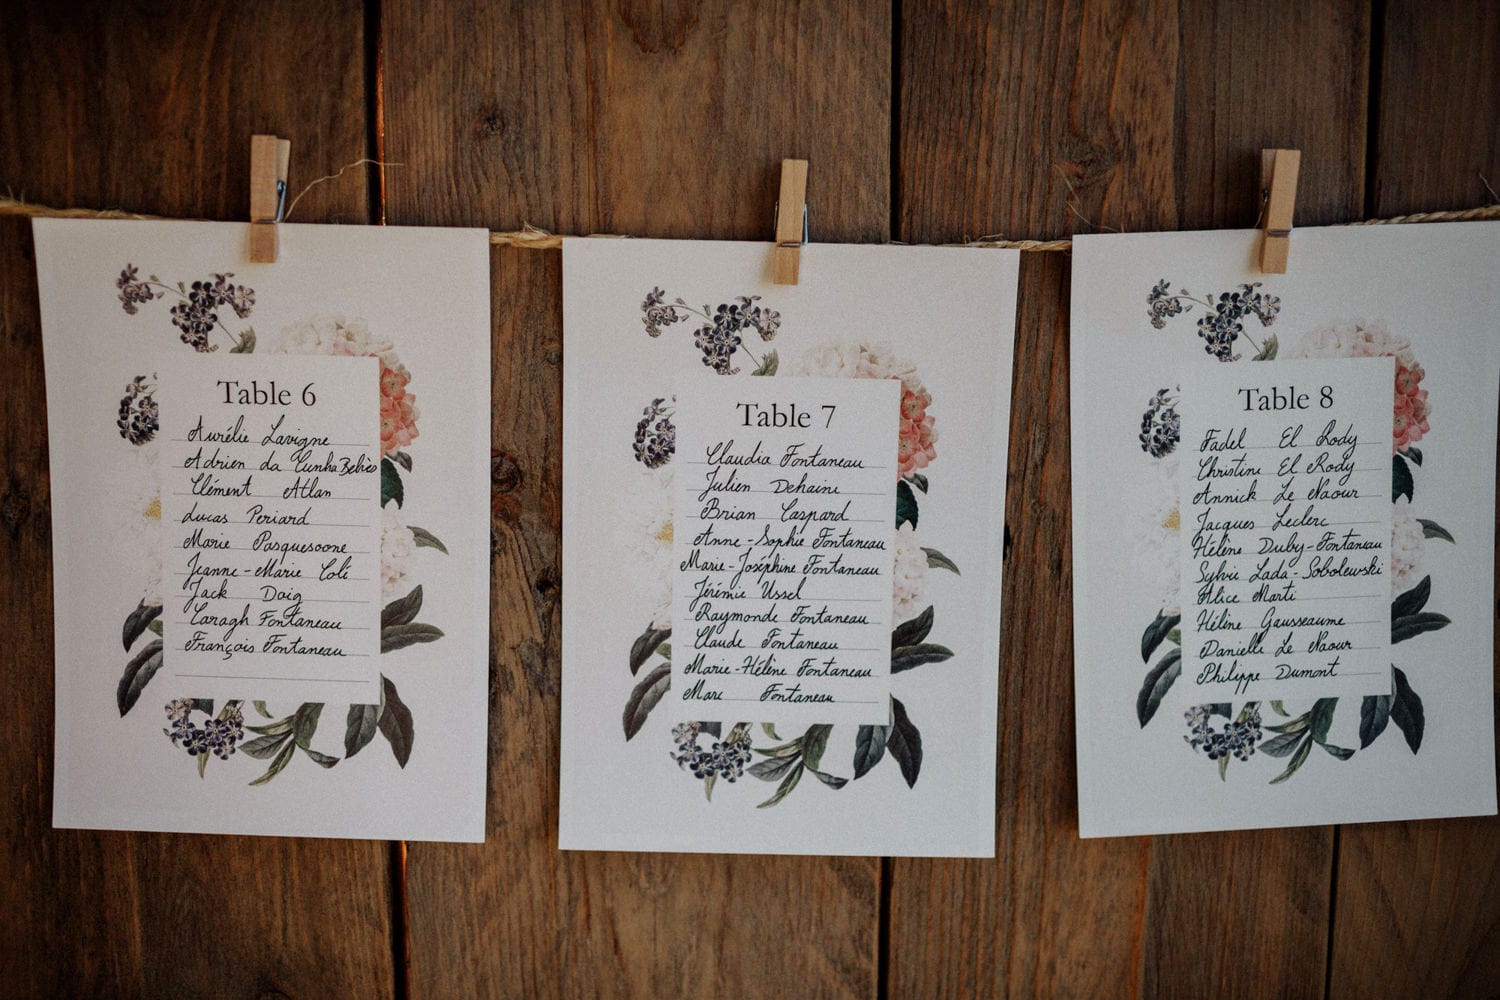 Table 6
Aurélie Lavigne
Adrien da Cunha Belvès
Clément Atlan
Lucas Periard
Marie Pasquesoone
Jeanne-Marie Colé
Jack Doig
Caragh Fontaneau
François Fontaneau
Table 7
Claudia Fontaneau
Julien Dehaine
Brian Gaspard
Anne-Sophie Fontaneau
Marie-Joséphine Fontaneau
Jérémie Ussel
Raymonde Fontaneau
Claude Fontaneau
Marie-Hélène Fontaneau
Marc Fontaneau
Table 8
Fadel El Rody
Christine El Rody
Annick Le Naour
Jacques Leclerc
Hélène Duby-Fontaneau
Sylvie Lada-Sobolewski
Alice Marti
Hélène Gausseaume
Danielle Le Naour
Philippe Dumont